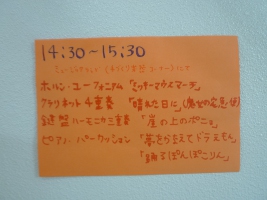 14:30~15:30
ホルン・ユーフォニアム 「ミッキーマウスマーチ」
クラリネット4重奏 「晴れた日に」(魔女の宅急便)
鍵盤ハーモニカ三重奏 「崖の上のポニョ」
ピアノ パーカッション 「夢をかなえてドラえもん」
「踊るぽんぽこりん」